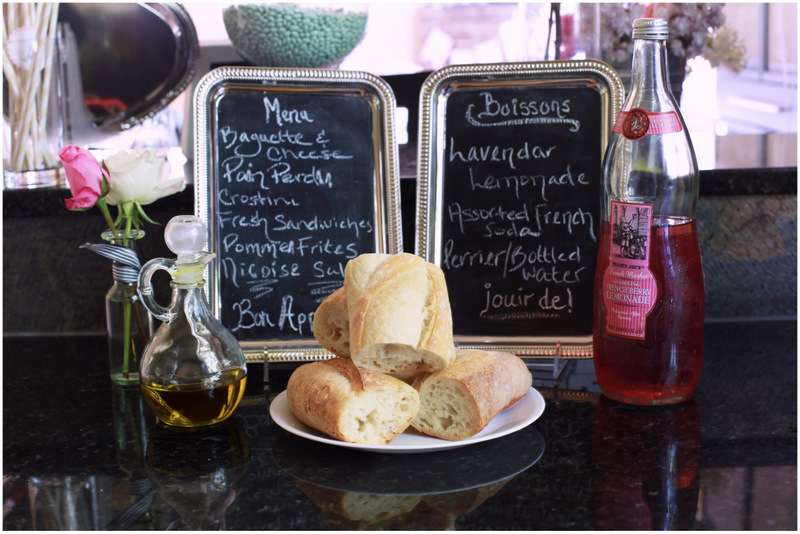 Menu
Baguette &
Cheese
Pain Perdu
Crostini
Fresh Sandwiches
Pommes Frites
Nicoise Sal
Bon Ap
Boissons
Lavendar
Lemonade
Assorted French
Soda
Perrier/Bottled
Water
jouir de!
FRENCH BERRY
LEMONADE